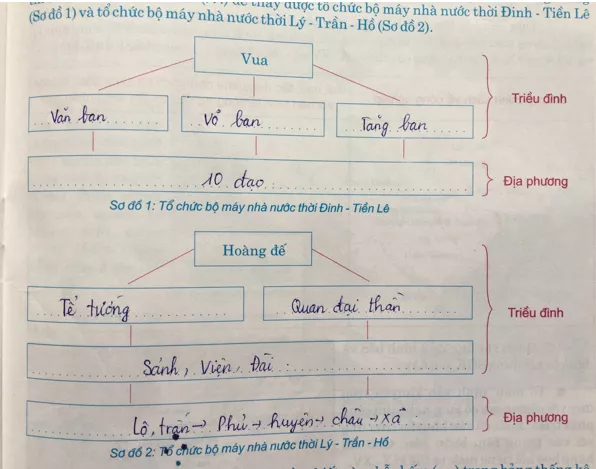 để thấy được tổ chức bộ máy nhà nước thời Đinh - Tiền Lê
(Sơ đồ 1) và tổ chức bộ máy nhà nước thời Lý - Trần - Hồ (Sơ đồ 2).
Vua
Triều đình
Văn ban
Võ ban
Tăng ban
10 đạo
Địa phương
Sơ đồ 1: Tổ chức bộ máy nhà nước thời Đinh - Tiền Lê
Hoàng đế
Tể tướng
Quan đại thần
Triều đình
Sảnh, Viện, Đài
Lộ, trấn → Phủ → huyện → châu → xã
Địa phương
Sơ đồ 2: Tổ chức bộ máy nhà nước thời Lý - Trần - Hồ